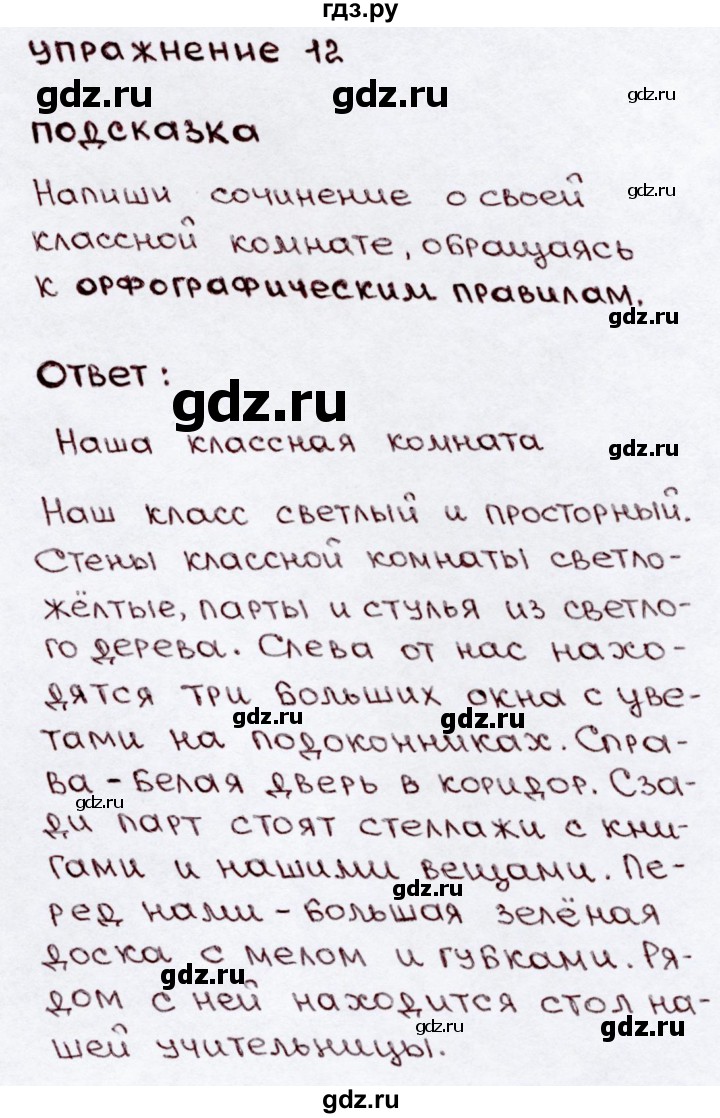 гдз.ру
упражнение 12
gdz.ru gdz.ru gdz.ru
подсказка
Напиши сочинение о своей gdz.ru
классной комнате, обращаясь
к орфографическим правилам.
gdz.ru
Ответ:
gdz.ru
Наша классная комната gdz.ru
Наш класс светлый и просторный.
Стены классной комнаты светло-
жёлтые, парты и стулья из светло-
го дерева. Слева от нас нахо-
дятся три больших окна с цве-
gdz.ru gdz.ru
тами на подоконниках. Спра-
ва - белая дверь в коридор. Сза-
gdz.ru
ди парт стоят стеллажи с кни-
гами и нашими вещами. Пе-
gdz.ru
ред нами - большая зелёная
доска с мелом и губками. Ря-
gdz.ru
дом с ней находится стол на-
gdz.ru gdz.ru
шей учительницы.
gdz.ru